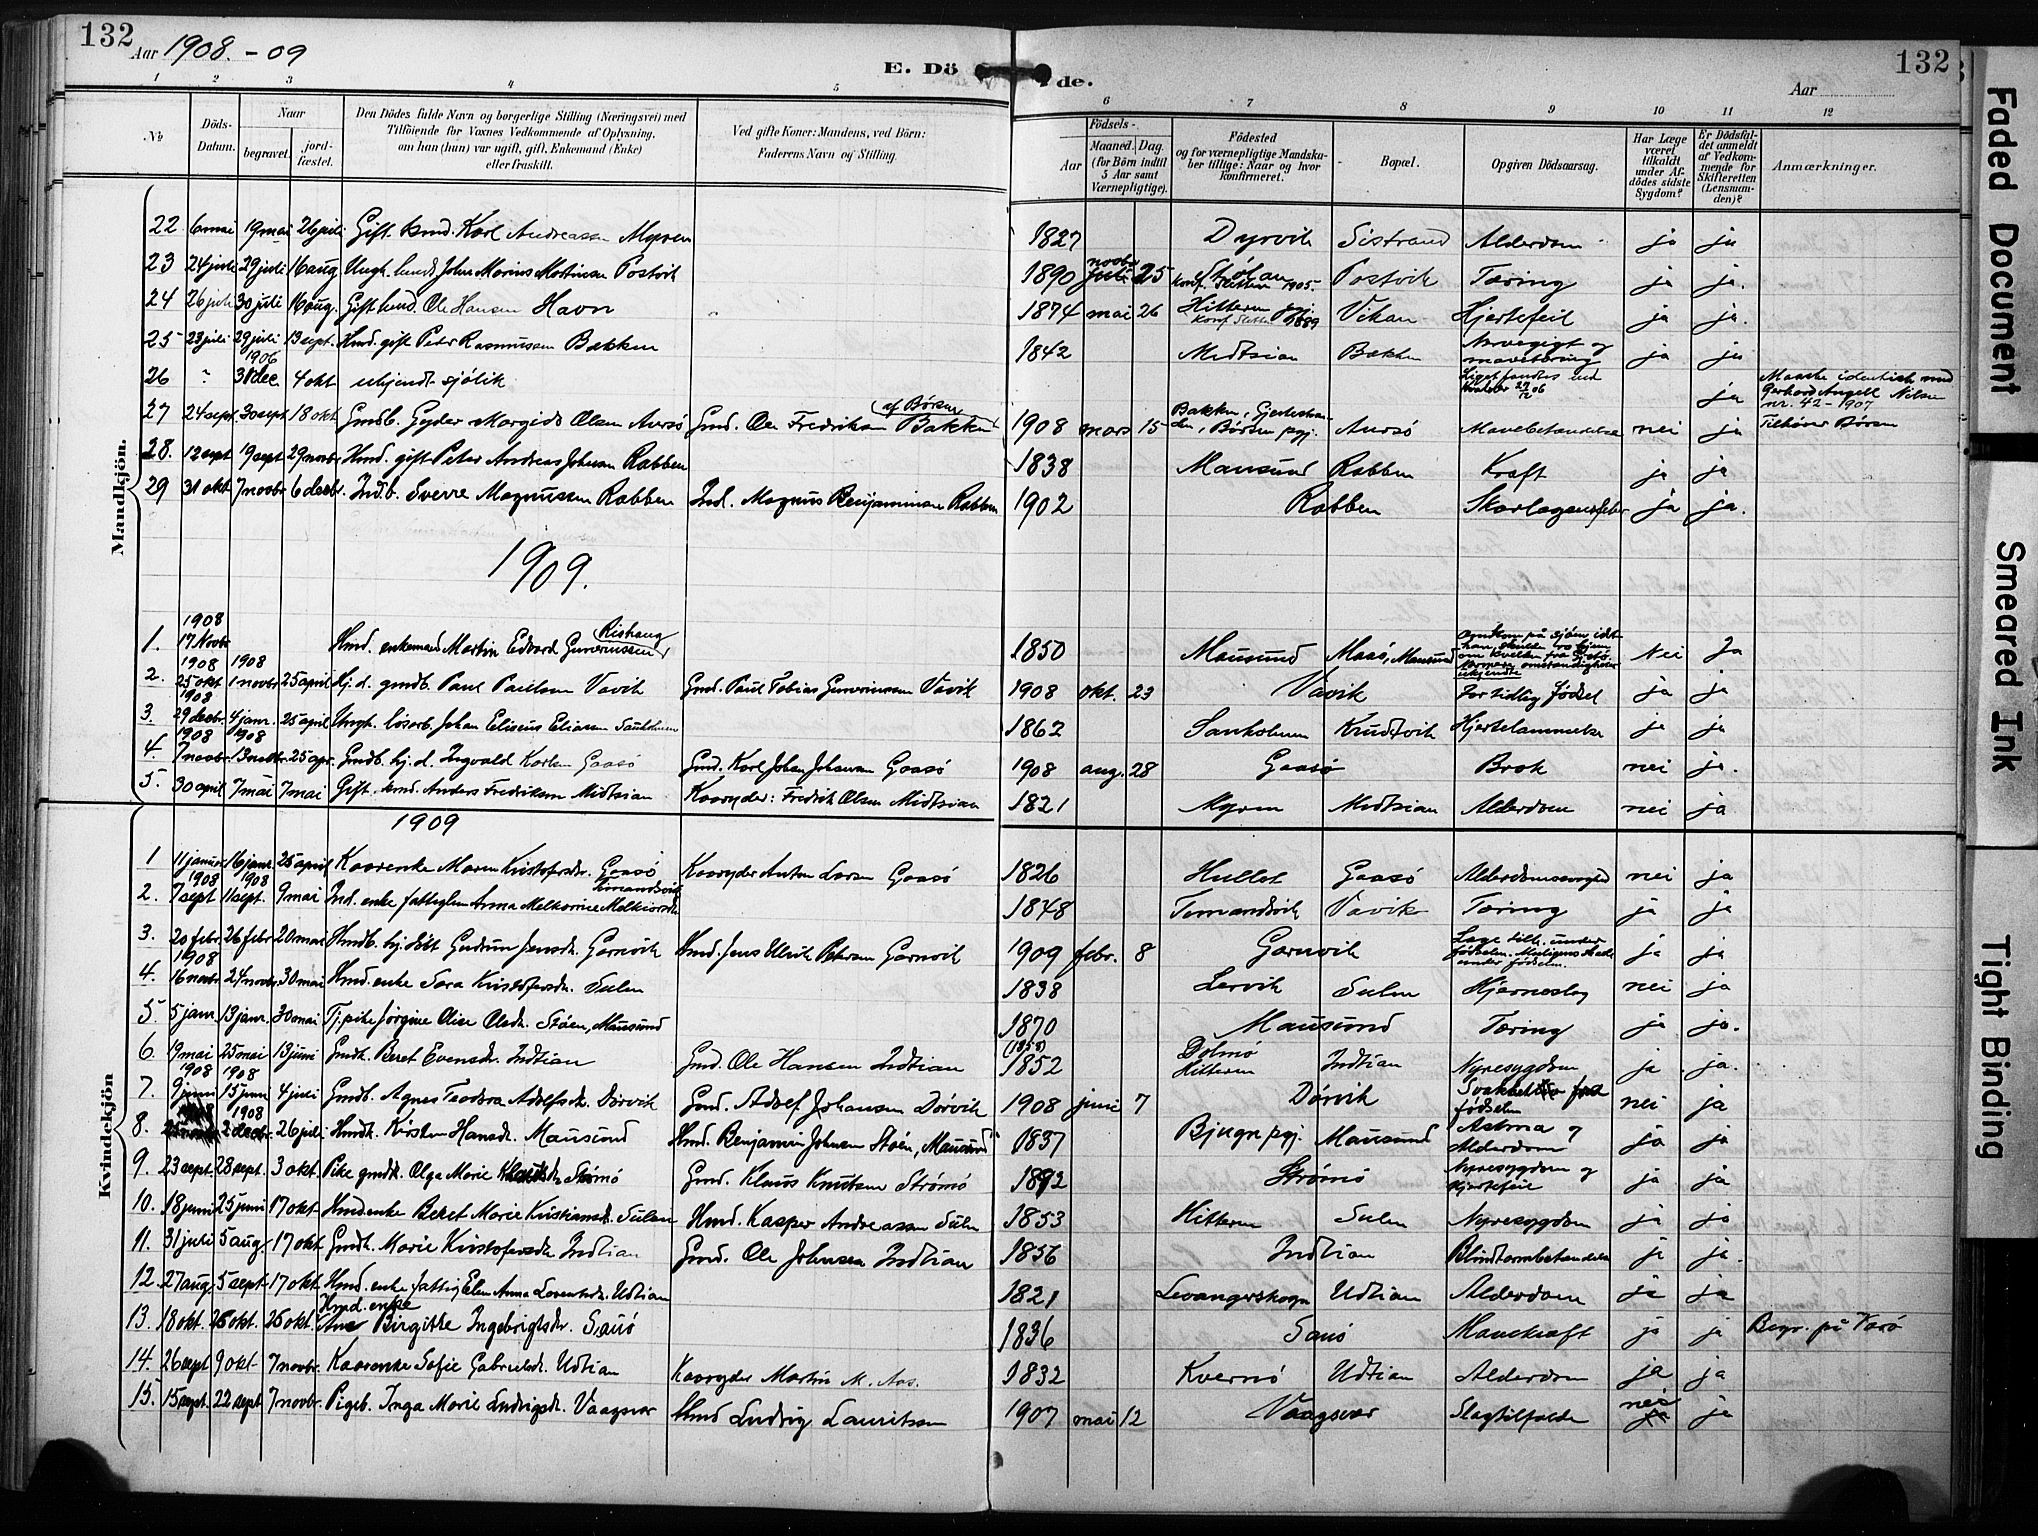 132
Aar 1908. - 09
E. Dö
de.
Aar
132
1 2 3 4 5 6 7 8 9 10 11 12
No
Döds-Datum.
Naar
begravet. jord-fæstet.
Den Dödes fulde Navn og borgerlige Stilling (Næringsvei) med
Tilföiende for Voxnes Vedkommende af Oplysning,
om han (hun) var ugift, gift, Enkemand (Enke)
eller fraskilt.
Ved gifte Koner: Mandens, ved Börn:
Faderens Navn og Stilling.
Födsels-
Aar Maaned. Dag.
(for Börn indtil
5 Aar samt
Værnepligtige).
Födested
og for værnepligtige Mandska-
ber tillige: Naar og hvor
konfirmeret.
Bopæl.
Opgiven Dödsaarsag.
Har Læge
været
tilkaldt
under Af-
dödes sidste
Sygdom?
Er Dödsfal-
det anmeldt
af Vedkom-
mende for
Skifteretten
(Lensman-
den)?
Anmærkninger.
Mandkjön.
22 6 mai 19 mai 26 juli Gift kmd. Karl Andreassen Myren 1827 Dyrvik Sistrand Alderdom ja ja
23 24 juli 29 juli 16 aug Ungk. Johan Marius Martinsen Postvik 1890 novbr 25 konf. 1905. Postvik Tæring ja ja.
24 26 juli 30 juli 16 aug. Gift Ole Hansen Havn 1874 mai 26 Hitteren pgj. konf. 1889 Vikan Hjertefeil ja ja.
25 23 juli 29 juli 13 sept. Hmd. gift Peter Rasmussen Bakken 1842 Midtsian Bakken og mavetæring ja ja
1906
26 ? 31 dec. 4 okt ukjendt sjólik Liget fandtes ved 27/12 06 ja Maaske identisk med
Gerhard Angell Nilsen
nr. 42 - 1907
27 24 sept 30 sept 18 okt Gmdb. Margido Olsen Aursö Gmd. Ole Fredriksen Bakken af Börsen 1908 mars 15 Bakken, Börsen pgj. Aursö Mavebetændelse nei ja Tilhörer Börsen
28. 12 sept 19 sept 29 novbr Hmd. gift Peter Andreas Johnsen Rabben 1838 Mausund Rabben Kraft ja ja
29 31 okt 7 novbr 6 decbr. Ind.b. Sverre Magnussen Rabben Ind. Magnus Benjaminsen Rabben 1902 Rabben Skarlagensfeber ja ja.
1909.
1908
1. 17 Novbr Hmd. enkemand Martin Edvard Gunerius­sen Rishaug 1850 Mausund Maasö, Mausund Omkom på sjöen idet
han skulde ro hjem
om kvelden fra
nærmere omstændigheder
ukjendte Nei Ja
1908 1908
2. 25 okt 1 novbr 25 april Hj. d. gmdb. Paul Paulsen Vavik Gmd. Paul Tobias Guneriussen Vavik 1908 okt. 23 Vavik For tidlig födsel ja ja
1908
3. 29 decbr. 4 janr. 25 april Ungk. lösarb. Johan Eliseus Eliasen Sauholmen 1862 Sauholmen Knudtvik Hjertelammelse ja ja
1908 1908
4. 7 novbr. 13 novbr. 25 apr. Gmdb. hj. d. Ingvald Karlsen Gaasö Gmd. Karl Johan Johansen Gaasö 1908 aug. 28 Gaasö Brok nei ja.
5. 30 april 7 mai 7 mai Gift. kmd. Anders Fredriksen Midtsian Kaaryder: Fredrik Olsen Midtsian 1821 Myren Midtsian Alderdom nei ja
Kvindekjön
1909
1 11 januar 16 janr. 25 april Kaarenke Maren Kristofersdr. Gaasö Kaaryder Anton Larsen Gaasö 1826 Hullet Gaasö Alderdomssvaghed nei ja
1908 1908
2. 7 sept 11 sept. 9 mai Ind. enke fattiglem Anna Melkorine Melkiorsdr Timandsvik 1848 Temandsvik Vavik Tæring ja ja
3. 20 febr. 26 febr 20 mai Hmdb. hj. döbt Gudrun Jensdr. Garnvik Hmd. Jens Ulrik Petersen Garnvik 1909 febr. 8 Garnvik Læge tilk. under
födselen. Muligens skade
under födselen. ja ja
1908
4. 16 novbr 24 novbr 30 mai Hmd. enke Sara Kristofersdr. Sulen 1838 Lervik Sulen Hjerneslag nei ja
5 5 janr. 13 janr. 30 mai Tj. pike Jörgine Oline Olsdr. Stöen, Mausund 1870 Mausund Tæring ja ja.
6. 19 mai 25 mai 13 juni Gmdk. Beret Evensdr. Indtian Gmd. Ole Hansen Indtian (1858)
1852 Dolmö
Hitteren Indtian Nyresygdom ja ja.
1908 1908
7. 9 juni 15 juni 4 juli Gmdb. Agnes Teodora Adolfsdr. Dörvik Gmd. Adolf Johansen Dörvik 1908 juni 7 Dörvik Svakhet fra
födselen nei ja
1908
8. 2 decbr. 26 juli Hmdk. Kirsten Hansdr. Mausund Hmd. Benjamin Johnsen Stöen, Mausund 1837 Bjugn pgj. Mausund Astma og
Alderdom ja ja
9. 23 sept. 28 sept. 3 okt. Pike gmdb. Olga Marie Strömö Gmd. Klaus Knutsen Strömö 1892 Strömö Nyresygdom og
Hjertefeil ja ja
10. 18 juni 25 juni 17 okt. Hmdenke Beret Marie Kristiansdr. Sulen Hmd. Kasper Andreassen Sulen 1853 Hitteren Sulen Nyresygdom ja ja
11. 31 juli 5 aug. 17 okt Gmdk. Marie Kristofersdr. Indtian Gmd. Ole Johnsen Indtian 1856 Indtian Blindtarmbetændelse ja ja.
12. 27 aug. 5 sept. 17 okt. Hmd. enke fattig Elen Anna Lorentsdr. Udtian 1821 Levangerskogn Udtian Alderdom ja ja
13. 18 okt. 25 okt. 25 okt. Hmd. enke
Ane Birgitte Ingebrigtsdr. Sauö 1836 Sauö Mavekraft ja ja Begr. på Varö
14. 26 sept 9 okt. 7 novbr. Kaarenke Sofie Gabrielsdr. Udtian Kaaryder Martin M. Aas. 1832 Kvernö Udtian Alderdom ja ja
15. 15 sept. 22 sept 7 novbr. Pigeb. Inga Marie Ludvigsdr. Vaagsvær Hmd Ludvig Lauritsen 1907 mai 12 Vaagsvær Slagtilfælde nei ja
Faded Document
Smeared Ink
Tight Binding